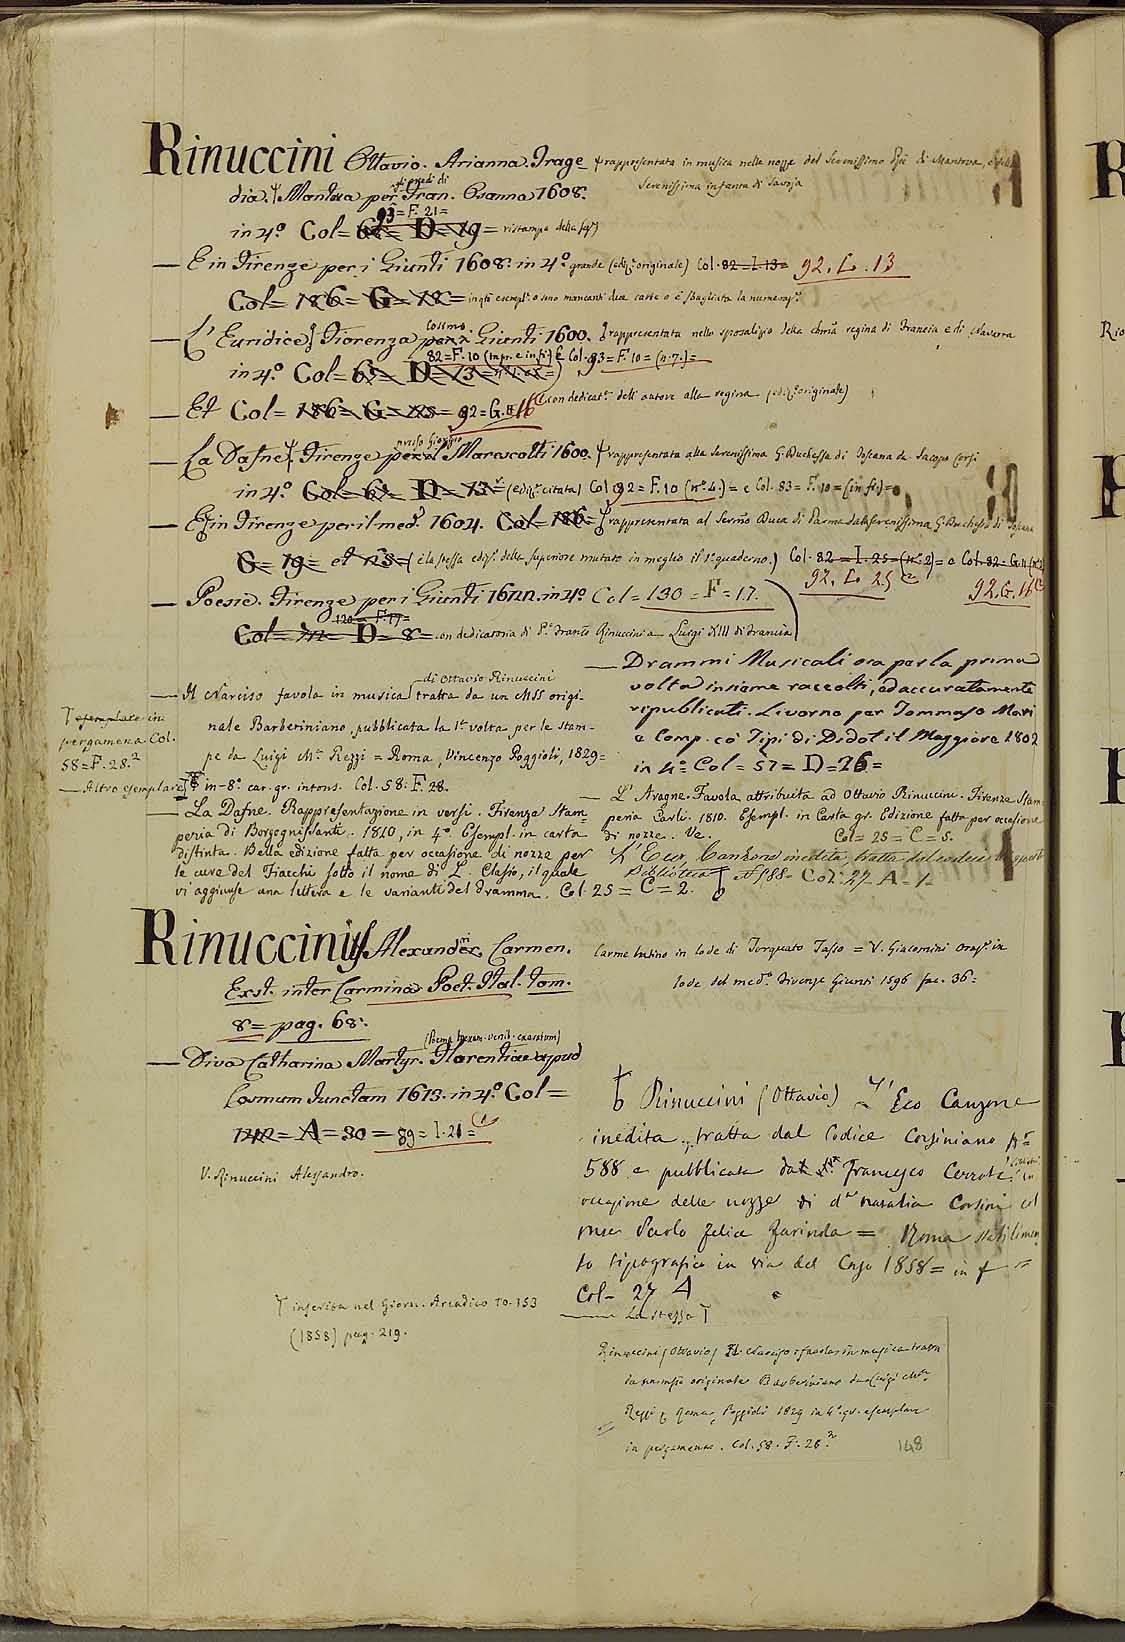 Rinuccini Ottavio. Arianna. Trage= rappresentata in musica nelle nozze del Serenissimo di Mantova, e della
Serenissima infanta di Savoja
gli eredi di
dia. Mantova per Fran. Osanna 1608.
93 = F. 21 =
in 4.° Col = D = 19 = ristampa della
— E in Firenze per i Giunti 1608. in 4.° grande (ediz. originale) Col. 82 = I. 13 = 92. L. 13
Col = 186 = G = 18 =
— L'Euridice. Fiorenza Giunti 1600. rappresentata nello sposalizio della regina di Francia, e di Navarra
Cosimo
82 = F. 10 e Col. 93 = F. 10 = (n. 7.) =
in 4.° Col = 65 = D = 13 =
— Et Col = 186 = G = 92 = G. 16 con dedicat. dell'autore alla regina (ediz. originale)
— La Dafne. Firenze Marescotti 1600. rappresentata alla Serenissima G. Duchessa di Toscana da Jacopo Corsi
Giorgio
in 4.° Col = D = 13 = (ediz. citata) Col 92 = F. 10 (n.° 4.) = e Col. 83 = F. 10 = (in fi.) =
— E in Firenze per il med. 1604. Col = 186 = rappresentata al Sermo Duca di Parma dalla Serenissima G. Duchessa di Toscana
G = 19 = et (è la stessa ediz. della superiore mutato in meglio il 1.° quaderno.) Col. 82 = I. 25 = (n.° 2) = e Col. 82 = G. 11
92. L. 25 92. G. 16
— Poesie. Firenze per i Giunti 1622. in 4.° Col = 130 = F = 17.
120 = F 17 =
Col = D = 8 = con dedicatoria di Rinuccini a Luigi XIII di Francia
— Drammi Musicali ora per la prima
volta insieme raccolti, ed accuratamente
ripubblicati. Livorno per Tommaso Masi
e Comp. co' Tipi di Didot il Maggiore 1802
in 4.° Col = 57 = D = 26 =
di Ottavio Rinuccini
— Il Narciso favola in musica tratta da un MSS origi-
nale Barberiniano, pubblicata la 1.ª volta per le stam-
pe da Luigi M.ª Rezzi = Roma, Vincenzo Poggioli, 1829 =
in - 8.° car. gr. intons. Col. 58. F. 28.
esemplare in
pergamena Col.
58 = F. 28.²
— Altro esemplare
— La Dafne. Rappresentazione in versi. Firenze Stam=
peria di Borgognissanti. 1810, in 4.° Esempl. in carta
distinta. Bella edizione fatta per occasione di nozze per
le cure del Fiacchi sotto il nome di L. Clasio, il quale
vi aggiunse una lettera e le varianti del dramma. Col. 25 = C = 2.
— L'Aragne. Favola attribuita ad Ottavio Rinuccini. Firenze Stam
peria Carli. 1810. Esempl. in Carta gr. Edizione fatta per occasione
di nozze. Ve. Col = 25 = C = 5.
L'Eco, Canzone inedita, tratta dal codice
Biblioteca N 588 = Col. 27 = A = 1 =
Rinuccinius Alexander Carmen.
Exst. inter Carmina Poet. Ital. tom.
8 = pag. 68.
Carme latino in lode di Torquato Tasso = V. Giacomini Oraz. in
lode del med. Firenze Giunti 1596 pac. 36 =
— Diva Catharina Martyr. Florentiae apud
Cosmum Junctam 1613. in 4.° Col =
142 = A = 30 = 89 = I. 21 =
V. Rinuccini Alessandro.
Rinuccini (Ottavio) = L'Eco Canzone
inedita, tratta dal Codice Corsiniano
588 e pubblicata da Francesco Cerroti in
occasione delle nozze di d. Natalia Corsini col
Paolo Felice Farinola = Roma stabilimen
to tipografico in via del Corso 1858 = in f
Col = 27 A
— La stessa
inserita nel Giorn. Arcadico to. 153
(1858) pag. 219.
Rinuccini (Ottavio) Il Narciso favola in musica tratta
da originale Barberiniano da Luigi M.ª
Rezzi Roma, Poggioli 1829 in 4.° gr. esemplare
in pergamena. Col. 58. F. 28.²
148